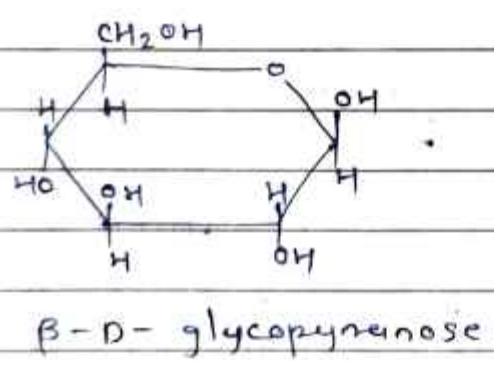 CH2OH
O
H
H
OH
HO
OH
H
H
H
OH
β-D- glycopyranose